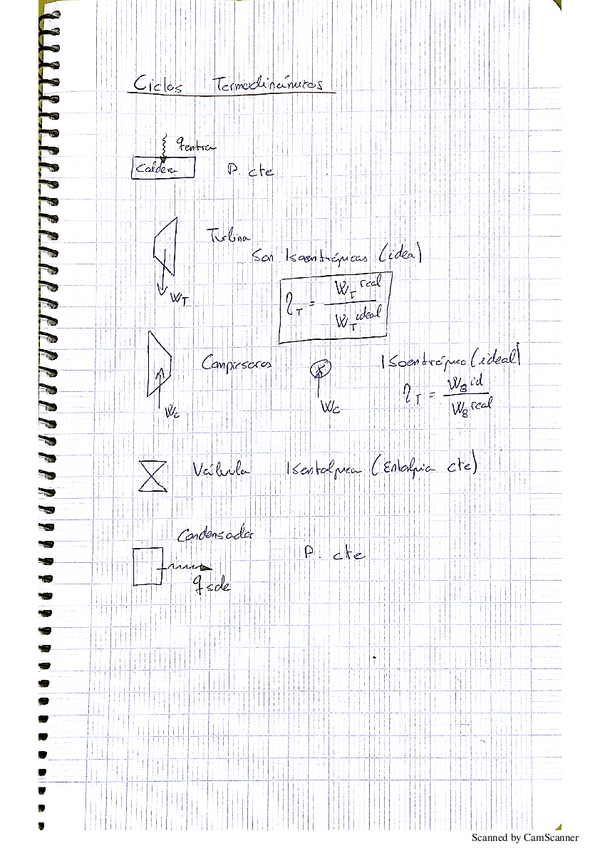 Ciclos Termodinámicos
qentra
Caldera P. cte
Turbina
Son Isoentrópicas (idea)
WT
ηT = WT real / WT ideal
Compresores Isoentrópico (ideal)
Wc Wc ηT = WB id / WB real
Válvula Isentálpica (Entalpia cte)
Condensador
P. cte
q sale
Scanned by CamScanner